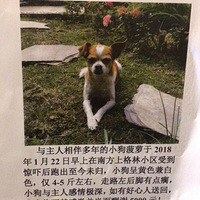 与主人相伴多年的小狗菠萝于 2018
年 1 月 22 日早上在南方上格林小区受到
惊吓后跑出至今未归，小狗呈黄色兼白
色，仅 4-5 斤左右，走路左后脚有点瘸，
小狗与主人感情极深，如有好心人送回，
5000 元